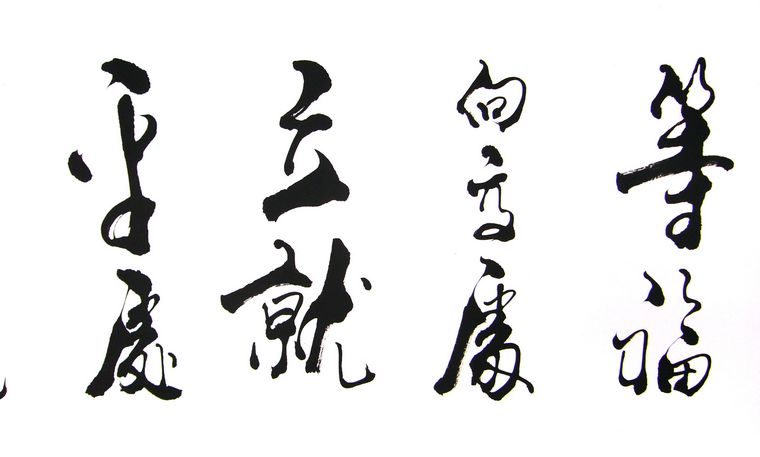 等福
向高處
立就
平處